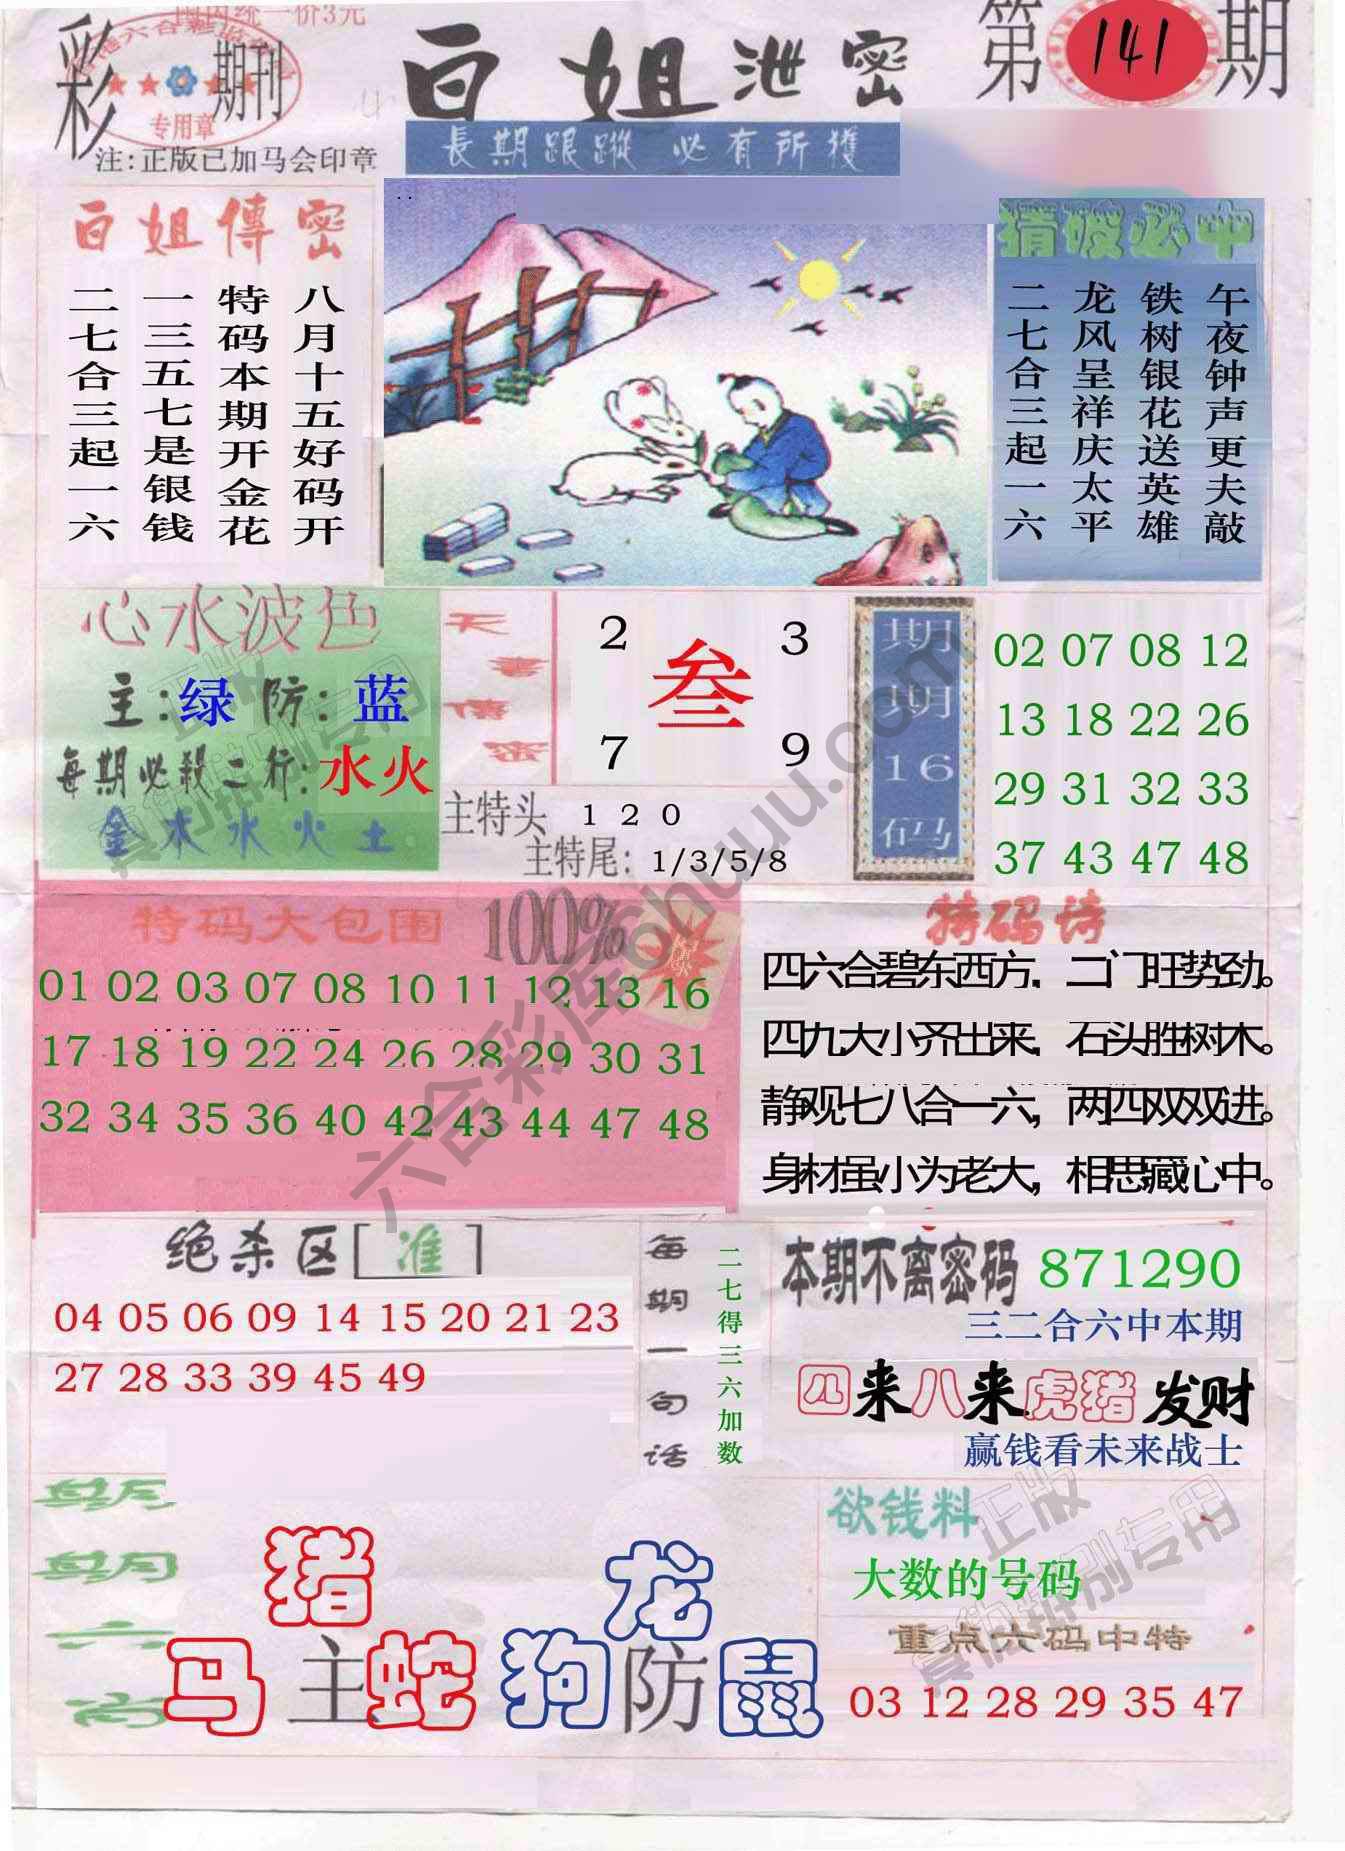 国内统一价3元
彩 期刊
专用章
注:正版已加马会印章
白姐泄密
第141期
長期跟蹤 必有所獲
白姐傳密
八月十五好码开
特码本期开金花
一三五七是银钱
二七合三起一六
猜破必中
午夜钟声更夫敲
铁树银花送英雄
龙风呈祥庆太平
二七合三起一六
心水波色
主:绿 防:蓝
每期必殺二行:水火
金木水火土
天書传密
2 3
叁
7 9
主特头 1 2 0
主特尾: 1/3/5/8
期期16码
02 07 08 12
13 18 22 26
29 31 32 33
37 43 47 48
特码大包围 100%
01 02 03 07 08 10 11 12 13 16
17 18 19 22 24 26 28 29 30 31
32 34 35 36 40 42 43 44 47 48
特码诗
四六合碧东西方，二门旺势劲。
四九大小齐出来，石头胜树木。
静观七八合一六，两四双双进。
身材虽小为老大，相思藏心中。
绝杀区[准]
04 05 06 09 14 15 20 21 23
27 28 33 39 45 49
每期一句话
二七得三六加数
本期不离密码 871290
三二合六中本期
四来八来虎猪发财
赢钱看未来战士
期期六肖
猪
马主蛇
龙
狗防鼠
欲钱料
大数的号码
重点六码中特
03 12 28 29 35 47
六合彩库6huuu.com
正版